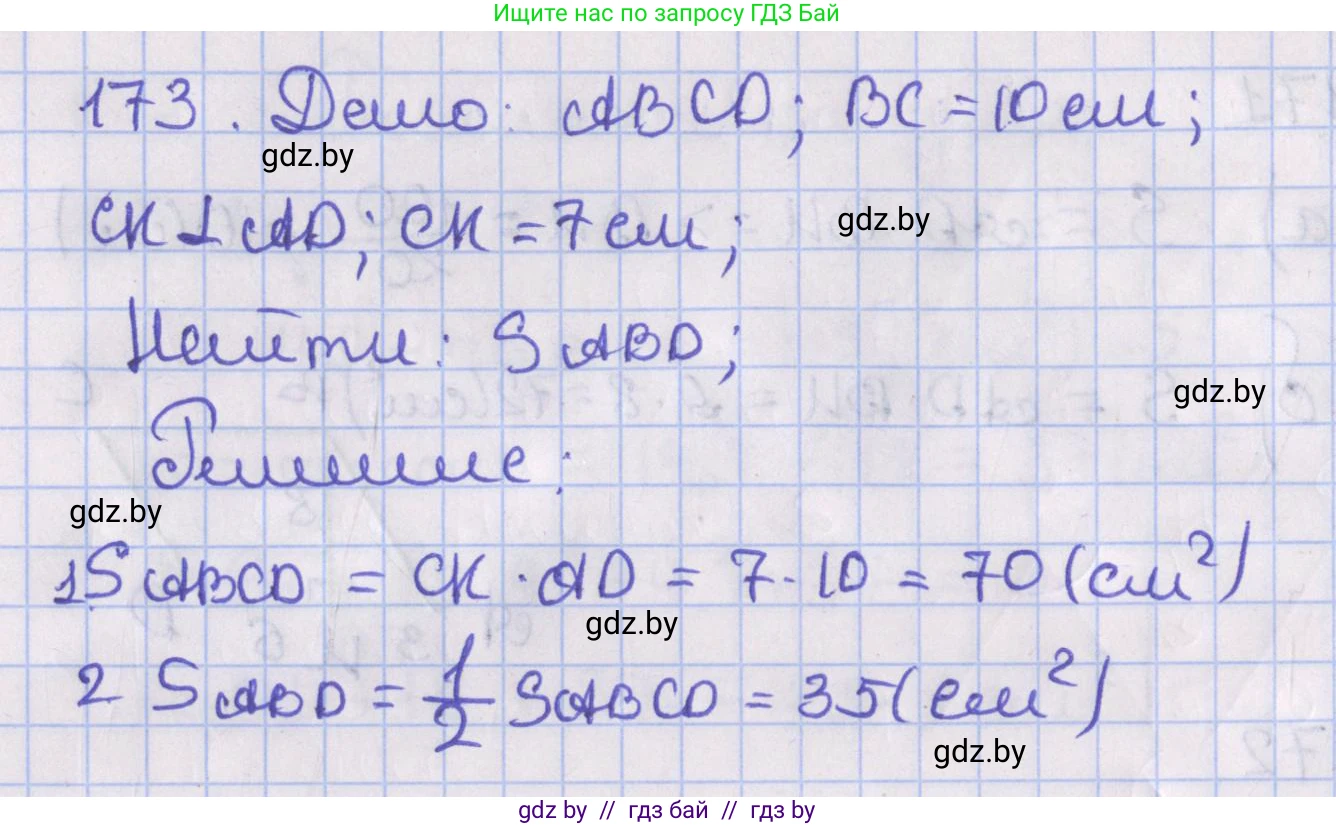 Ищите нас по запросу ГДЗ Бай
173. Дано: ABCD; BC = 10 см;
gdz.by
CK ⊥ AD; CK = 7 см;
gdz.by
Найти: S ABD;
gdz.by
Решение:
gdz.by
1 S ABCD = CK · AD = 7 · 10 = 70 (см²)
gdz.by
2 S ABD = 1/2 S ABCD = 35 (см²)
gdz.by
gdz by // гдз бай // гдз by